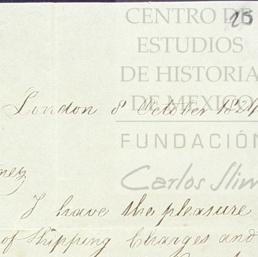 25
CENTRO DE
ESTUDIOS
DE HISTORIA
DE MEXICO
London 8 October 1824
FUNDACIÓN
Carlos Slim
I have the pleasure
of Shipping Charges and